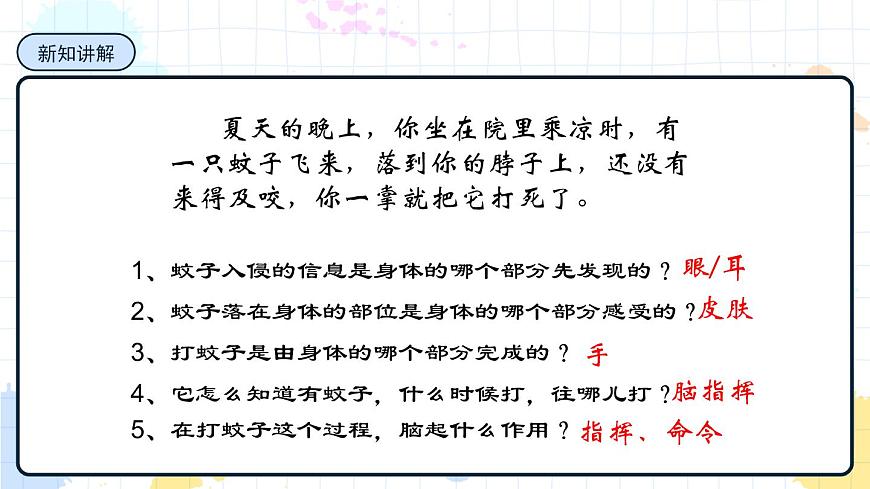 新知讲解
夏天的晚上，你坐在院里乘凉时，有
一只蚊子飞来，落到你的脖子上，还没有
来得及咬，你一掌就把它打死了。
1、蚊子入侵的信息是身体的哪个部分先发现的？眼/耳
2、蚊子落在身体的部位是身体的哪个部分感受的？皮肤
3、打蚊子是由身体的哪个部分完成的？手
4、它怎么知道有蚊子，什么时候打，往哪儿打？脑指挥
5、在打蚊子这个过程，脑起什么作用？指挥、命令